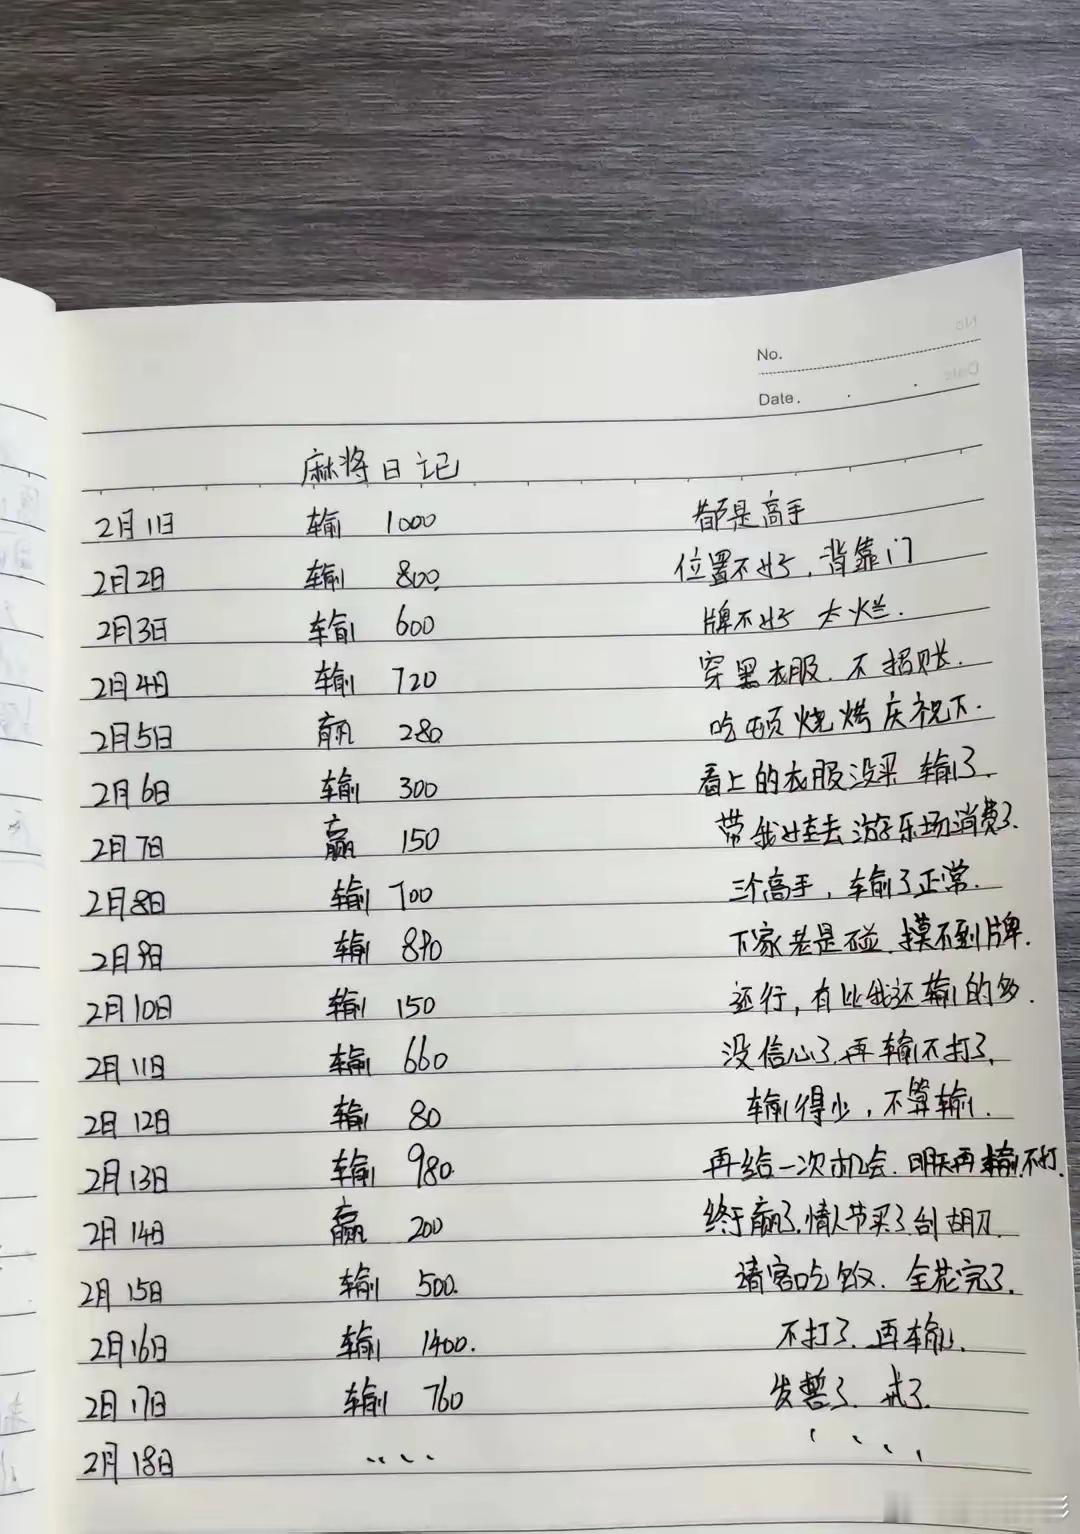 No.
Date.
麻将日记
2月1日 输 1000 都是高手
2月2日 输 800. 位置不好,背靠门
2月3日 输 600 牌不好 太烂.
2月4日 输 720 穿黑衣服. 不招账.
2月5日 赢 280 吃顿烧烤庆祝下.
2月6日 输 300 看上的衣服没买 输了.
2月7日 赢 150 带我娃去游乐场消费了.
2月8日 输 700 三个高手,输了正常.
2月9日 输 890 下家老是碰. 摸不到牌.
2月10日 输 150 还行,有比我还输的多.
2月11日 输 660 没信心了.再输不打了.
2月12日 输 80 输得少,不算输.
2月13日 输 980. 再给一次机会.明天再输不打.
2月14日 赢 200 终于赢了.情人节买了刮胡刀.
2月15日 输 500. 请客吃饭. 全花完了.
2月16日 输 1400. 不打了.再输.
2月17日 输 760 发誓了. 戒了.
2月18日 .... ....